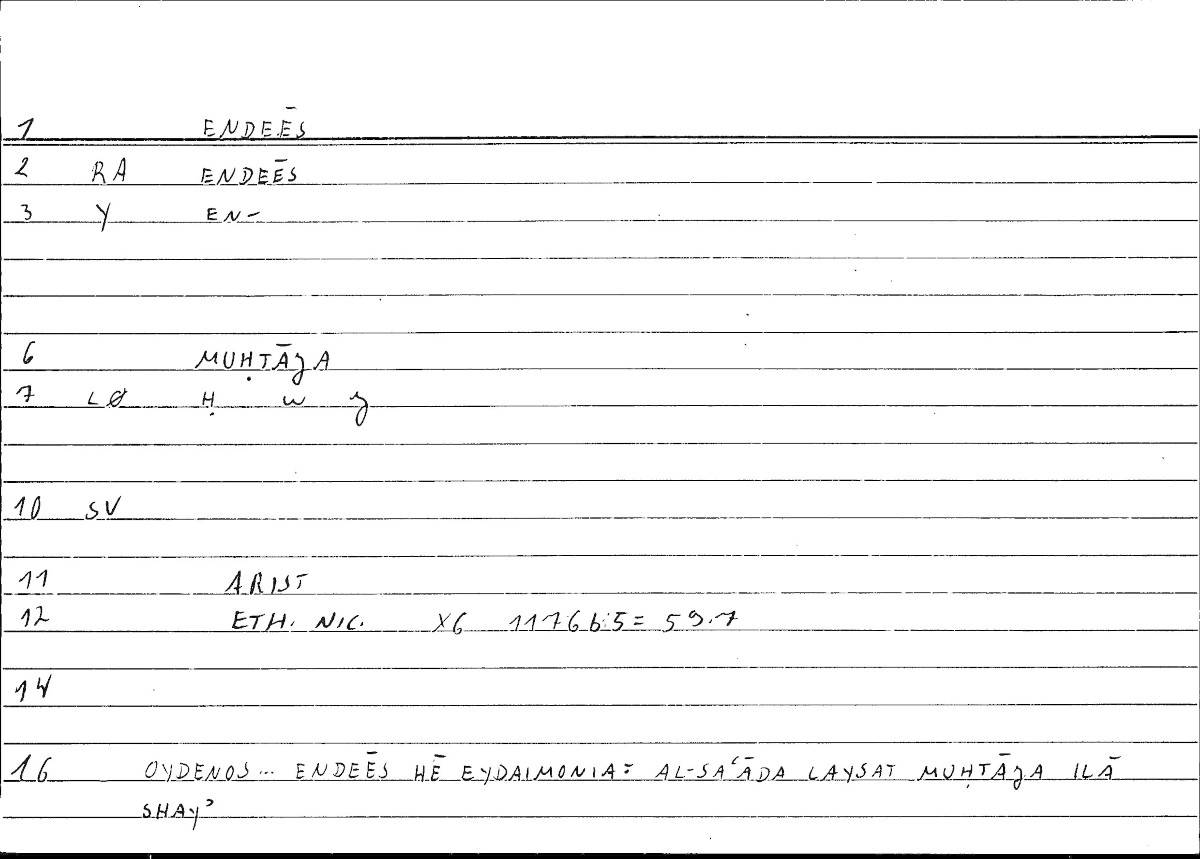 1 ENDEĒS
2 RA ENDEĒS
3 Y EN-
6 MUḤTĀJA
7 LØ Ḥ W J
10 SV
11 ARIST
12 ETH. NIC. X6 1176b5 = 59.7
14
16 OYDENOS... ENDEĒS HĒ EYDAIMONIA: AL-SAʿĀDA LAYSAT MUḤTĀJA ILĀ
SHAYʾ